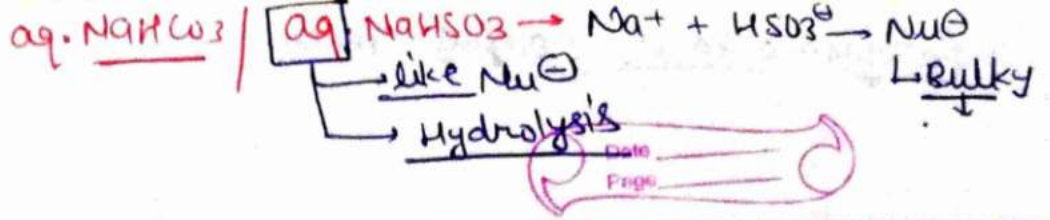 aq. NaHCO3 / aq. NaHSO3 → Na+ + HSO3⊖ → Nu⊖
→ like Nu⊖
↳ Bulky ↓
→ Hydrolysis
Date
Page